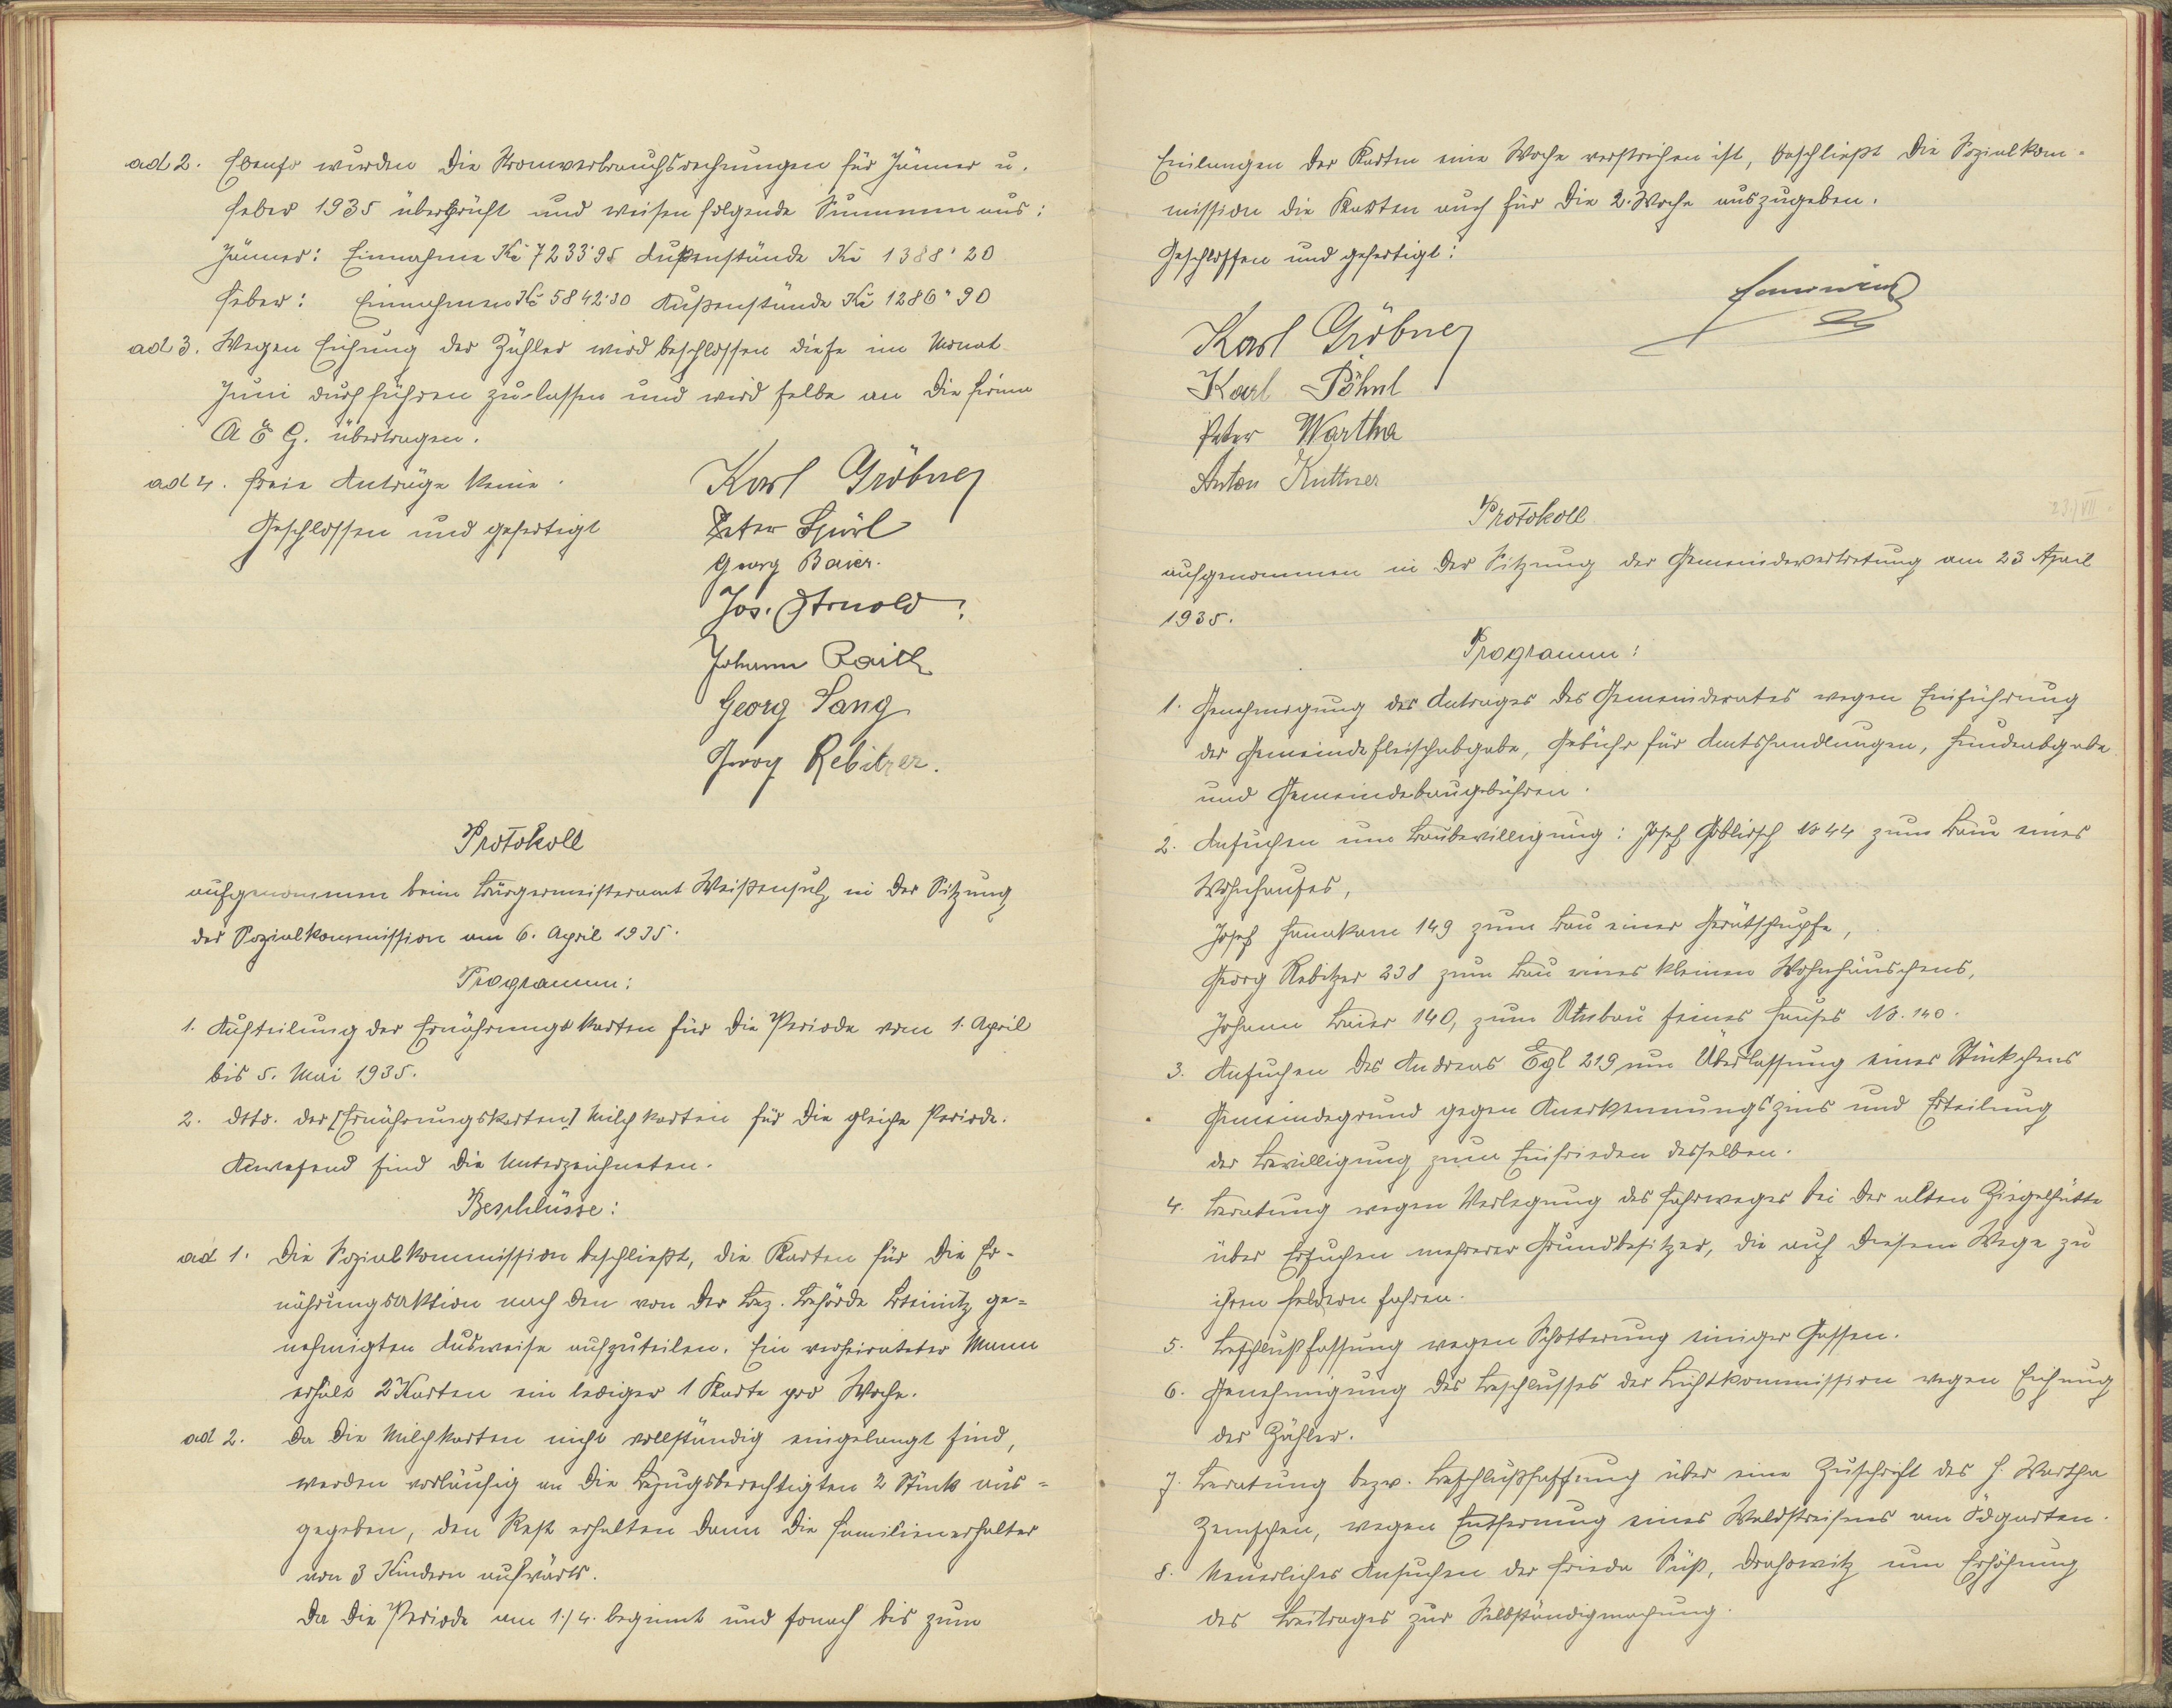 ad 2. Ebenso wurden die Stromverbrauchsrechnungen für Jänner u.
Feber 1935 überprüft und weisen folgende Summen aus:
Jänner: Einnahme Kč 7233·95 Außenstände Kč 1388·20
Feber: Einnahmen Kč 5842·30 Außenstände Kč 1286·90
ad 3. Wegen Eichung der Zähler wird beschlossen diese im Monat
Juni durchführen zu lassen und wird selbe an die Firma
A E G. übertragen.
ad 4. Freie Anträge keine.
Geschlossen und gefertigt
Karl Gröbner
Peter Spörl
Georg Baier.
Jos. Arnold
Johann Raith
Georg Lang
Georg Rebitzer.
Protokoll
aufgenommen beim Bürgermeisteramt Weißensulz, in der Sitzung
der Sozialkommission am 6. April 1935.
Programm:
1. Aufteilung der Ernährungskarten für die Periode vom 1. April
bis 5. Mai 1935.
2. dtto. der [Ernährungskarten] Milchkarten für die gleiche Periode.
Anwesend sind die Unterzeichneten.
Beschlüsse:
ad 1. Die Sozialkommission beschließt, die Karten für die Er-
nährungsaktion nach den von der Bez. Behörde ge-
nehmigten Ausweise aufzuteilen. Ein verheirateter Mann
erhält 2 Karten ein lediger 1 Karte pro Woche.
ad 2. Da die Milchkarten nicht vollständig eingelangt sind,
werden vorläufig an die Bezugsberechtigten 2 Stück aus-
gegeben, den Rest erhalten dann die Familienerhalter
von 3 Kindern aufwärts.
Da die Periode am 1./4. beginnt und sonach bis zum
Einlangen der Karten eine Woche verstrichen ist, beschließt die Sozialkom-
mission die Karten auch für die 2. Woche auszugeben.
Geschlossen und gefertigt:
Karl Gröbner
Karl Pöhnl
Peter Wartha
Anton Kuttner
Protokoll
23./VII.
aufgenommen in der Sitzung der Gemeindevertretung am 23 April
1935.
Programm:
1. Genehmigung des Antrages des Gemeinderates wegen Einführung
der Gemeindefleischabgabe, Gebühr für Amtshandlungen, Hundeabgabe
und Gemeindebaugebühren.
2. Ansuchen um Baubewilligung: Josef Goblirsch No 44 zum Bau eines
Wohnhauses,
Josef Hanakam 149 zum Bau einer Gerätschupfe,
Georg Rebitzer 238 zum Bau eines kleinen Wohnhäuschens,
Johann Baier 140, zum Umbau seines Hauses No. 140.
3. Ansuchen des Andreas Egl 219 um Überlassung eines Stückchens
Gemeindegrund gegen Anerkennungszins und Erteilung
der Bewilligung zum Einfrieden desselben.
4. Beratung wegen Verlegung des Fahrweges bei der alten Ziegelhütte
über Ersuchen mehrerer Grundbesitzer, die auf diesem Wege zu
ihren Feldern fahren.
5. Beschlußfassung wegen Schotterung einiger Gassen.
6. Genehmigung des Beschlusses der Lichtkommission wegen Eichung
der Zähler.
7. Beratung bezw. Beschlußfassung über eine Zuschrift des H. Wartha
Zemschen, wegen Entfernung eines Waldstreifens am Ödgarten.
8. Neuerliches Ansuchen der Frieda Süß, Drahowitz um Erhöhung
des Beitrages zur Selbständigmachung.